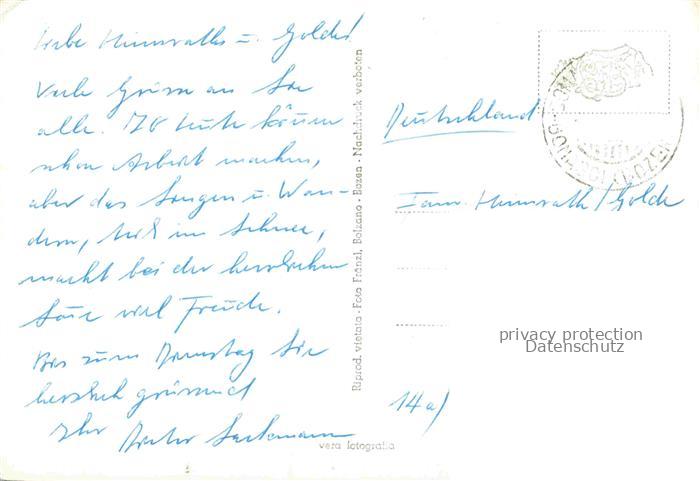 Liebe Himmraths u. Goldes!
Viele Grüsse an Sie
alle. 70 Leute können
schon Arbeit machen,
aber das Singen u. Wan-
dern, teils im Schnee,
macht bei der herrlichen
Sonne viel Freude.
Bis zum Dienstag Sie
herzlich grüssend
Ihr Dieter
Riprod. vietata - Foto Fränzl, Bolzano - Bozen - Nachdruck verboten
vera fotografia
Deutschland
Fam. Himmrath / Golde
privacy protection
Datenschutz
14a)